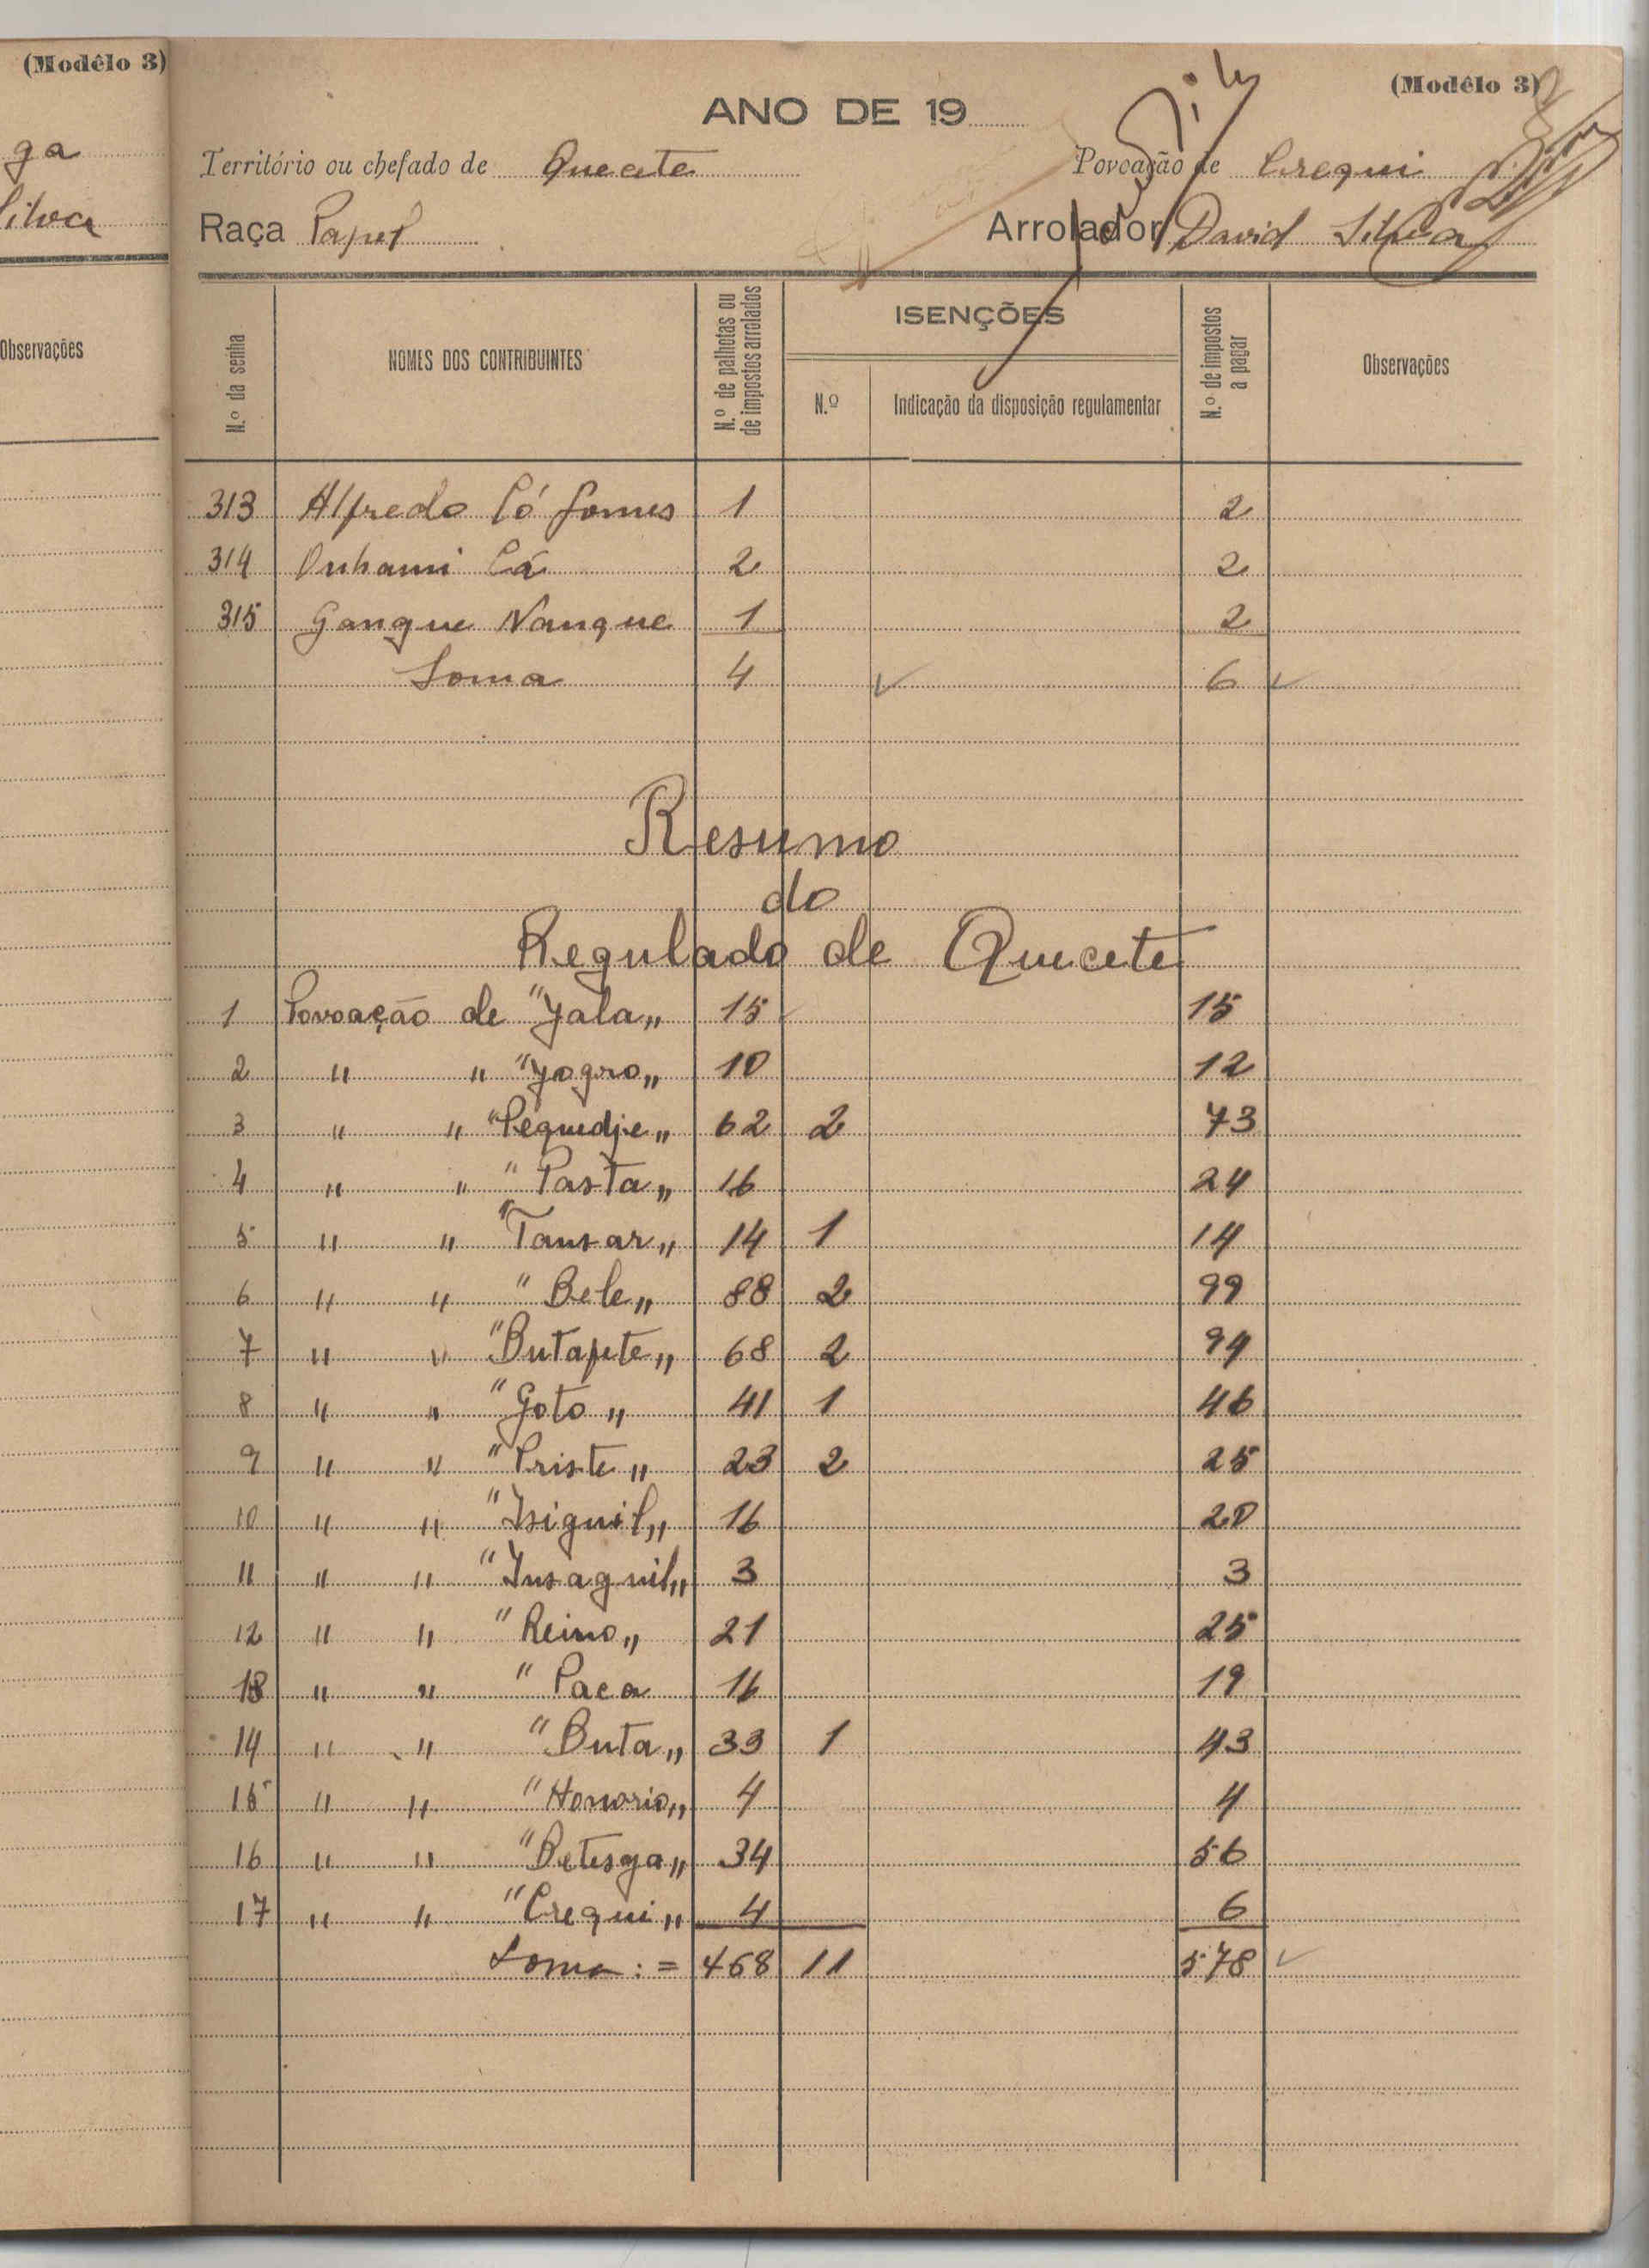 (Modêlo 3)
ga
Silva
Observações
(Modêlo 3)
ANO DE 19
Território ou chefado de Quecete
Povoação de Crequi
Raça Papel
Arrolador David Silva
N.º da senha
NOMES DOS CONTRIBUINTES
N.º de palhotas ou de impostos arrolados
ISENÇÕES
N.º
Indicação da disposição regulamentar
N.º de impostos a pagar
Observações
313 Alfredo Có Gomes 1 2
314 Cá 2 2
315 Gangue Nanque 1 2
Soma 4 6
Resumo
do
Regulado de Quecete
1 Povoação de "Jala„ 15 15
2 " " "Jogro„ 10 12
3 " " "Péguedje„ 62 2 73
4 " " "Pasta„ 16 24
5 " " "Tansar„ 14 1 14
6 " " "Bele„ 88 2 99
7 " " "Butapete„ 68 2 94
8 " " "Goto„ 41 1 46
9 " " "Priste„ 23 2 25
10 " " "Isiguil„ 16 20
11 " " "Insaguil„ 3 3
12 " " "Reino„ 21 25
13 " " "Paca 16 19
14 " " "Buta„ 33 1 43
15 " " "Honorio„ 4 4
16 " " "Betesga„ 34 56
17 " " "Crequi„ 4 6
Soma: = 468 11 578